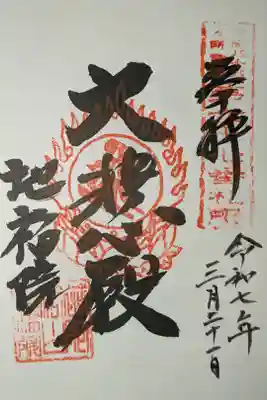 奉拝
令和七年
三月二十一日
大悲殿
地福院